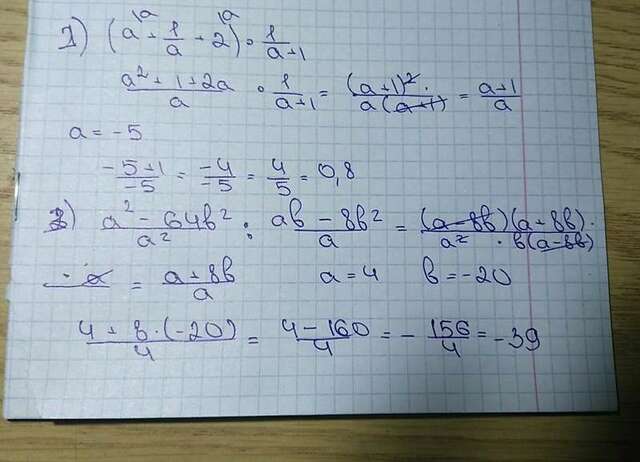 1) (a^{\a} + 1/a + 2^{\a}) · 1/(a+1)
(a² + 1 + 2a)/a · 1/(a+1) = (a+1)²/(a(a+1)) = (a+1)/a
a = -5
(-5+1)/(-5) = (-4)/(-5) = 4/5 = 0,8
2) (a² - 64b²)/a² : (ab - 8b²)/a = ((a-8b)(a+8b)·)/(a² · b(a-8b))
· a = (a+8b)/a a = 4 b = -20
(4 + 8·(-20))/4 = (4 - 160)/4 = - 156/4 = -39